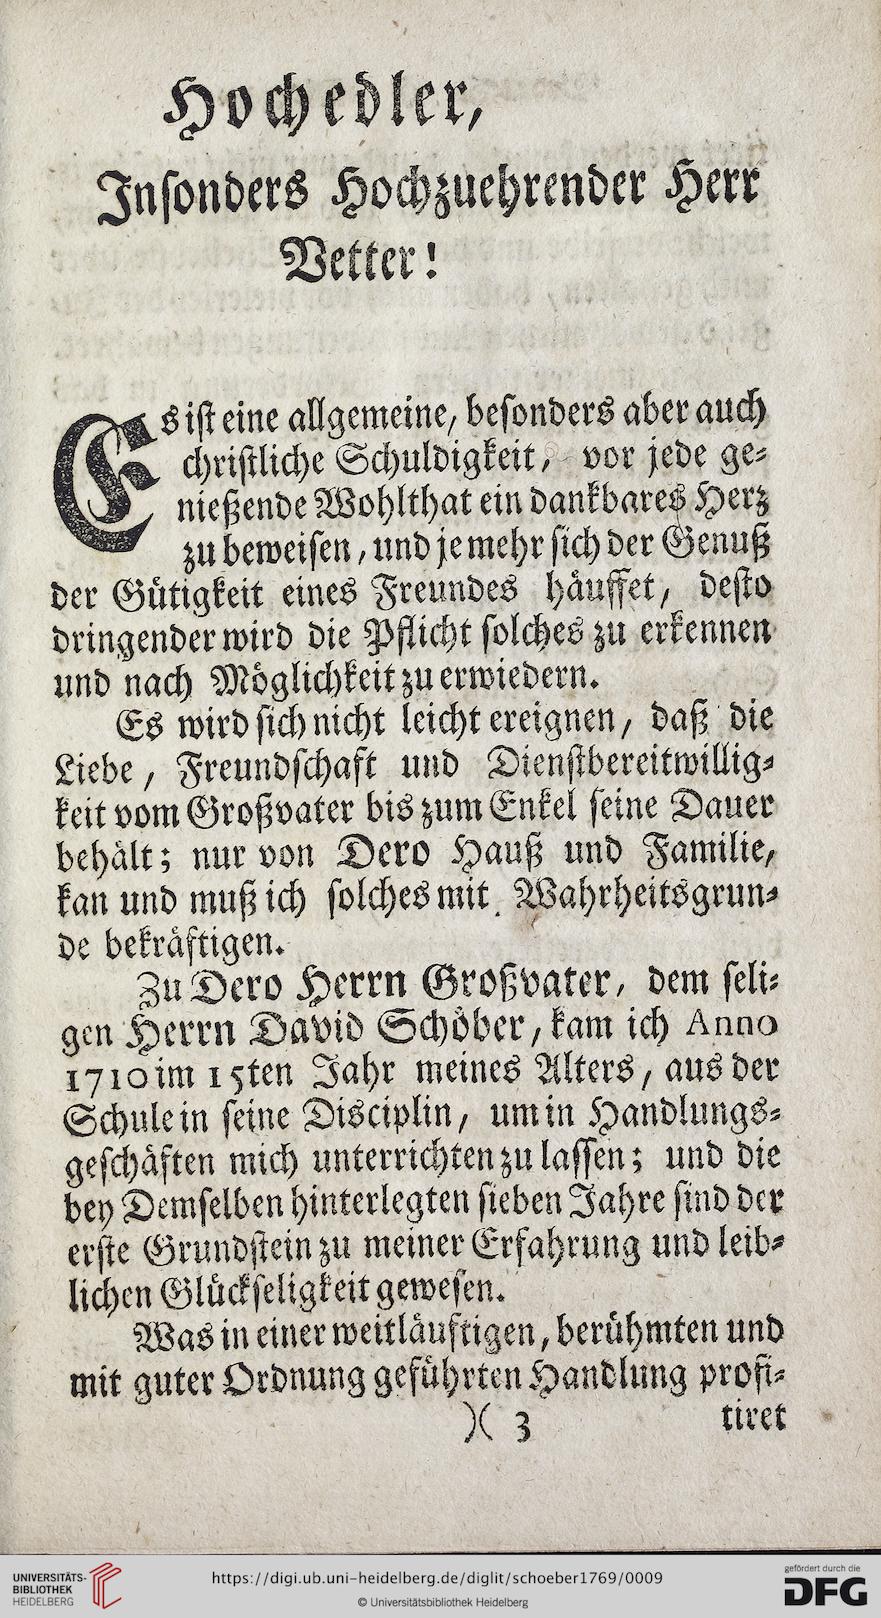 Hochedler,
Insonders Hochzuehrender Herr
Vetter!
Es ist eine allgemeine, besonders aber auch
christliche Schuldigkeit, vor jede ge-
nießende Wohlthat ein dankbares Herz
zu beweisen, und je mehr sich der Genuß
der Gütigkeit eines Freundes häuffet, desto
dringender wird die Pflicht solches zu erkennen
und nach Möglichkeit zu erwiedern.
Es wird sich nicht leicht ereignen, daß die
Liebe, Freundschaft und Dienstbereitwillig-
keit vom Großvater bis zum Enkel seine Dauer
behält; nur von Dero Hauß und Familie,
kan und muß ich solches mit Wahrheitsgrun-
de bekräftigen.
Zu Dero Herrn Großvater, dem seli-
gen Herrn David Schöber, kam ich Anno
1710 im 15ten Jahr meines Alters, aus der
Schule in seine Disciplin, um in Handlungs-
geschäften mich unterrichten zu lassen; und die
bey Demselben hinterlegten sieben Jahre sind der
erste Grundstein zu meiner Erfahrung und leib-
lichen Glückseligkeit gewesen.
Was in einer weitläuftigen, berühmten und
mit guter Ordnung geführten Handlung profi-
)( 3 tiret
UNIVERSITÄTS-
BIBLIOTHEK
HEIDELBERG
https://digi.ub.uni-heidelberg.de/diglit/schoeber1769/0009
© Universitätsbibliothek Heidelberg
gefördert durch die
DFG